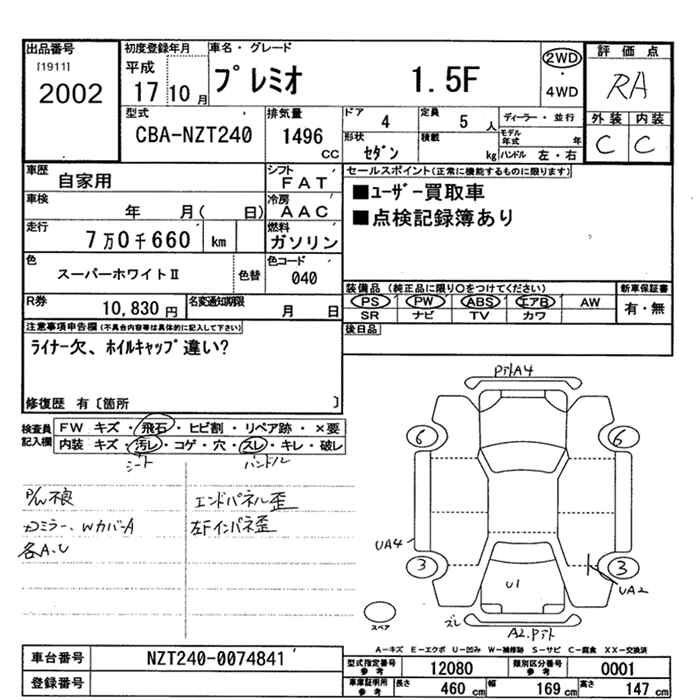 出品番号
[1911]
2002
初度登録年月
平成
17 10 月
車名・グレード
プレミオ 1.5F
2WD
・
4WD
評価点
RA
外装 内装
C C
型式
CBA-NZT240
排気量
1496
CC
ドア
4
定員
5 人
ディーラー・並行
形状
セダン
積載
kg
モデル年式 年
ハンドル 左・右
車歴
自家用
シフト
FAT
車検
年 月( 日)
冷房
AAC
走行
7万0千660 km
燃料
ガソリン
色
スーパーホワイトⅡ
色替
色コード
040
R券
10,830 円
名変通知期限
月 日
セールスポイント(正常に機能するものに限ります)
■ユーザー買取車
■点検記録簿あり
装備品 (純正品に限り○をつけてください)
PS PW ABS エアB AW
SR ナビ TV カワ
新車保証書
有・無
後日品
注意事項申告欄(不具合内容等は具体的に記入して下さい)
ライナー欠、ホイルキャップ違い?
修復歴 有〔箇所 〕
検査員
記入欄
FW キズ・飛石・ヒビ割・リペア跡・×要
内装 キズ・汚レ・コゲ・穴・スレ・キレ・破レ
シート
ハンドル
P/W不良
エンドパネル歪
カミラー、WカバーA
左Fインパネ歪
各A.U
6 6
UA4
3 3
U1
UA2
スペア
ズレ
A－キズ E－エクボ U－凹み W－補修跡 S－サビ C－腐食 XX－交換済
車台番号
NZT240-0074841
登録番号
型式指定番号
参考
12080
類別区分番号
参考
0001
車庫証明用
参考
長さ
460 cm
幅
169 cm
高さ
147 cm